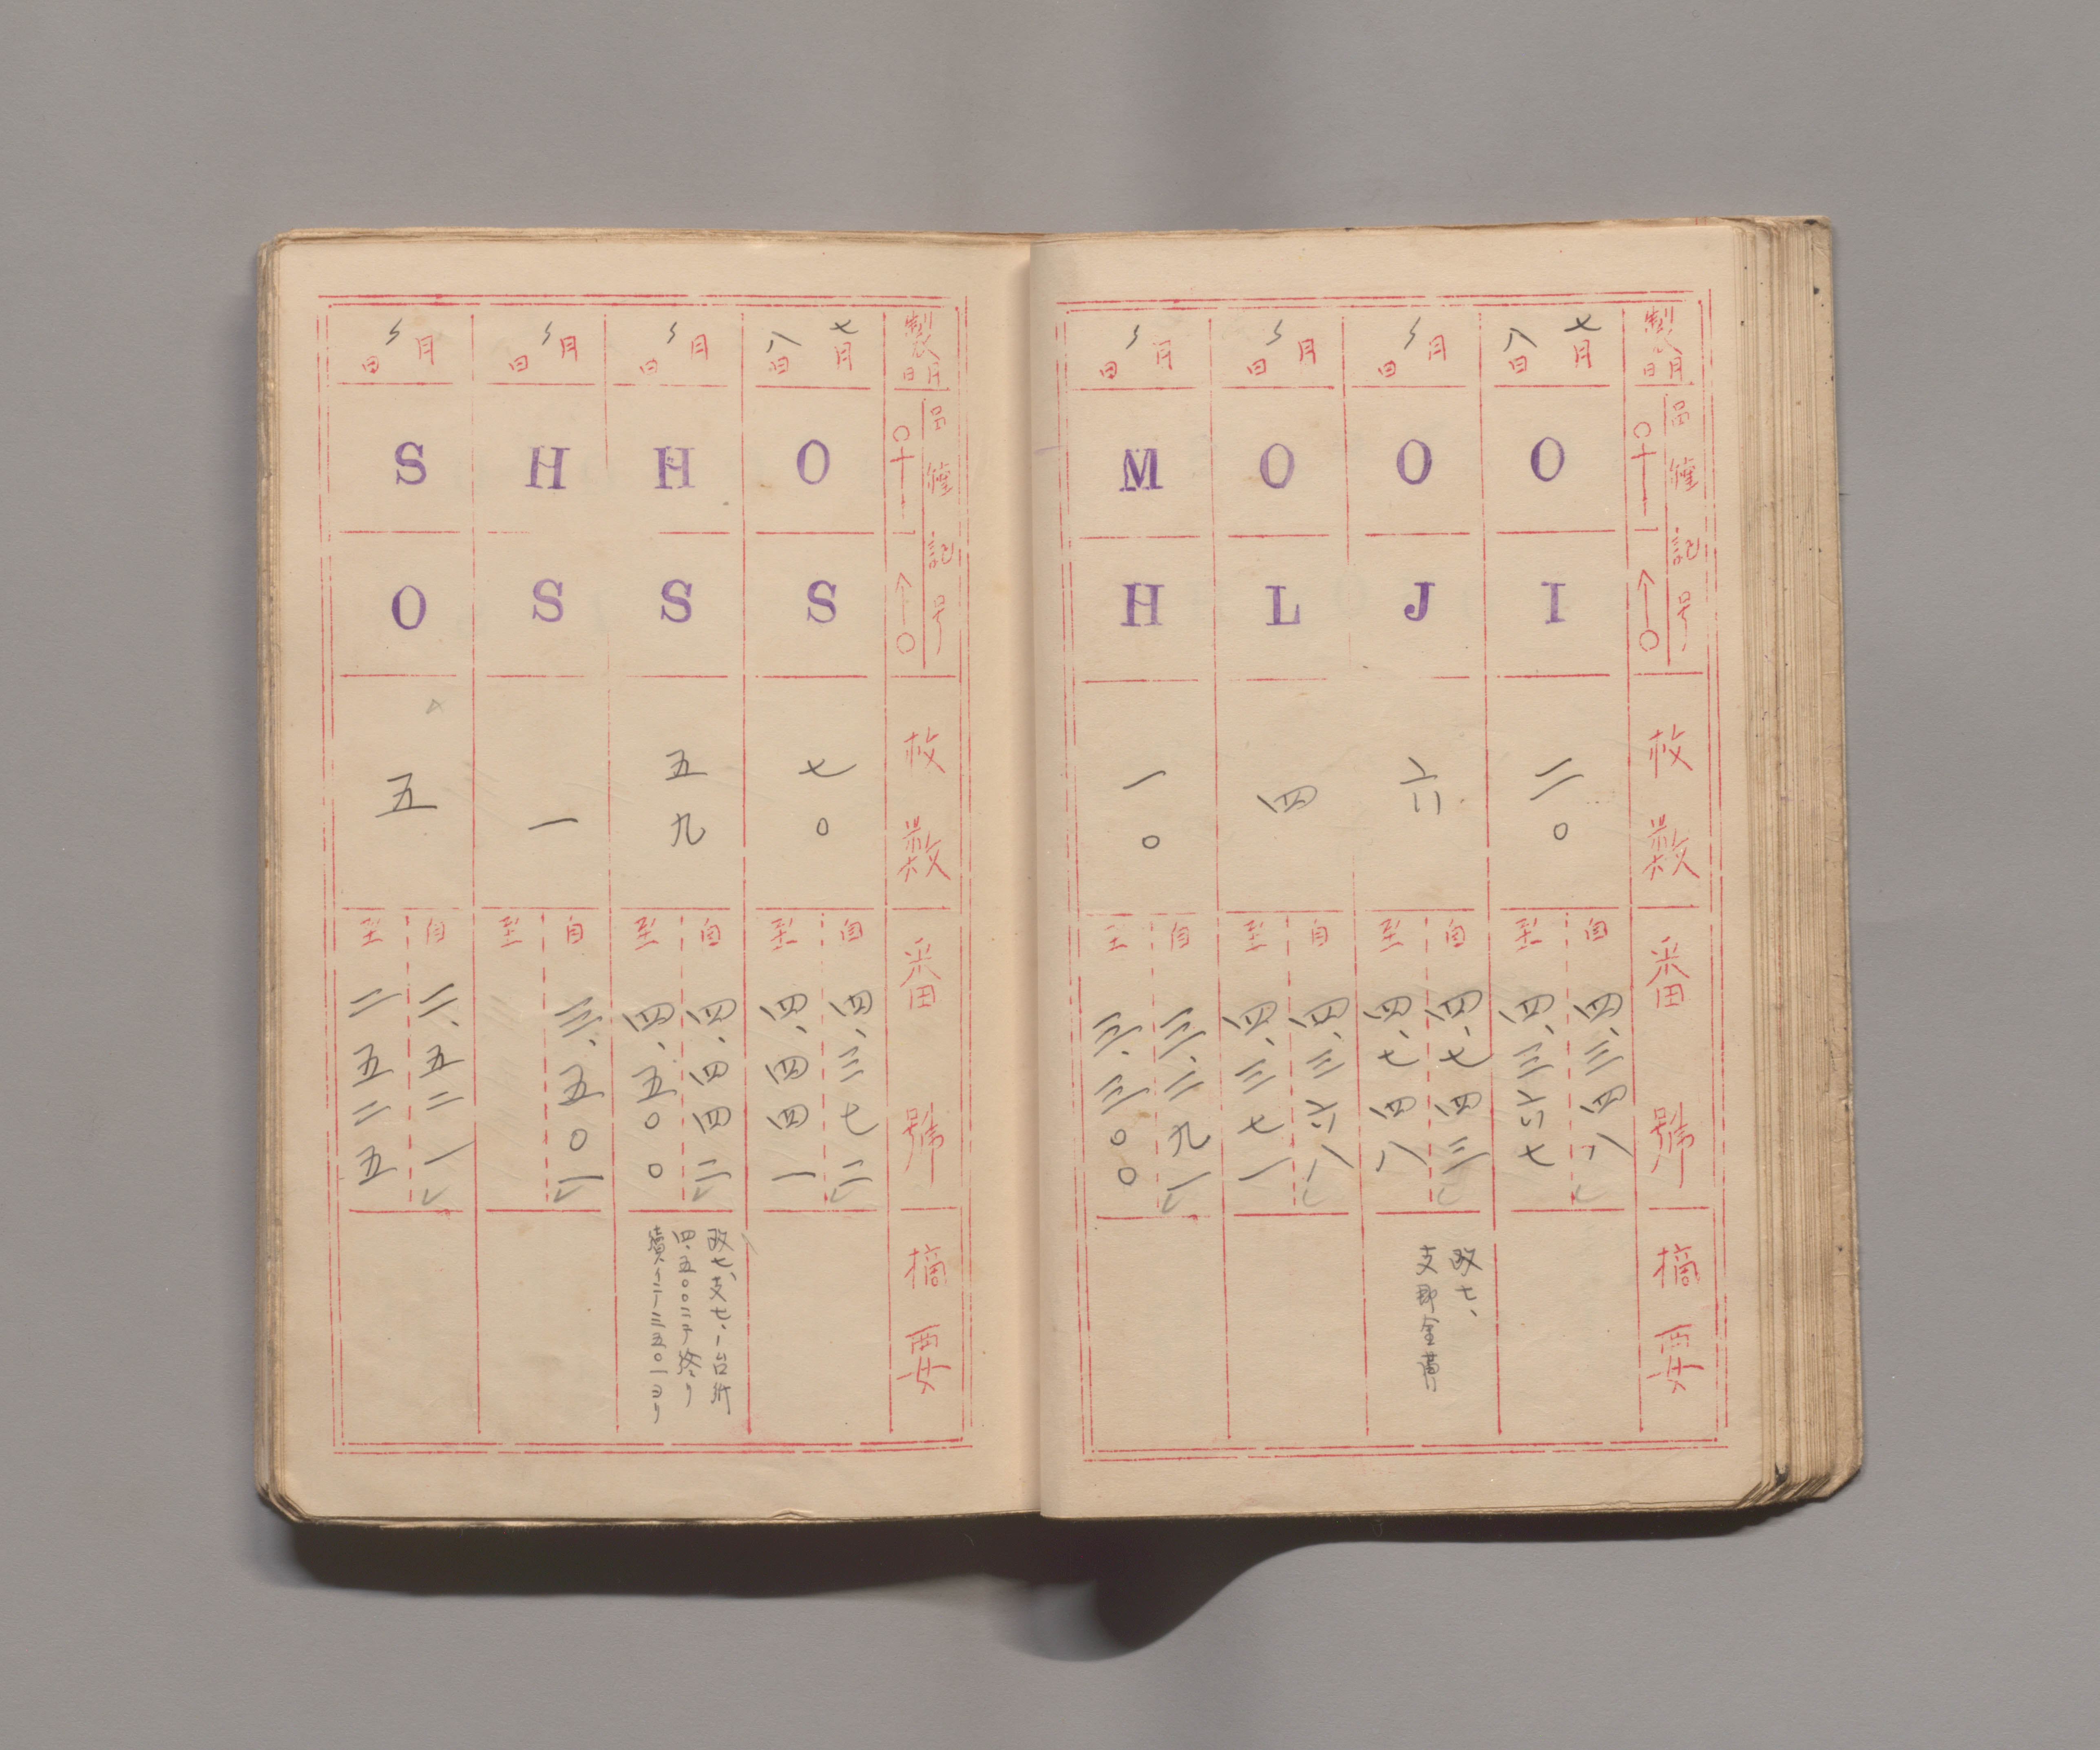 製月日
品種記号
枚数
番號
摘要
七月八日
O
I
二〇
自 四、三四八
至 四、三六七
〻月〻日
O
J
六
自 四、七四三
至 四、七四八
改七、
支那全書
〻月〻日
O
L
四
自 四、三六八
至 四、三七一
〻月〻日
M
H
一〇
自 三、二九一
至 三、三〇〇
製月日
品種記号
枚数
番號
摘要
七月八日
O
S
七〇
自 四、三七二
至 四、四四一
〻月〻日
H
S
五九
自 四、四四二
至 四、五〇〇
改七、支七、一台紙
四、五〇〇ニテ終リ
三五〇一ヨリ
〻月〻日
H
S
一
自 三、五〇一
至
〻月〻日
S
O
五
自 二、五二一
至 二五二五